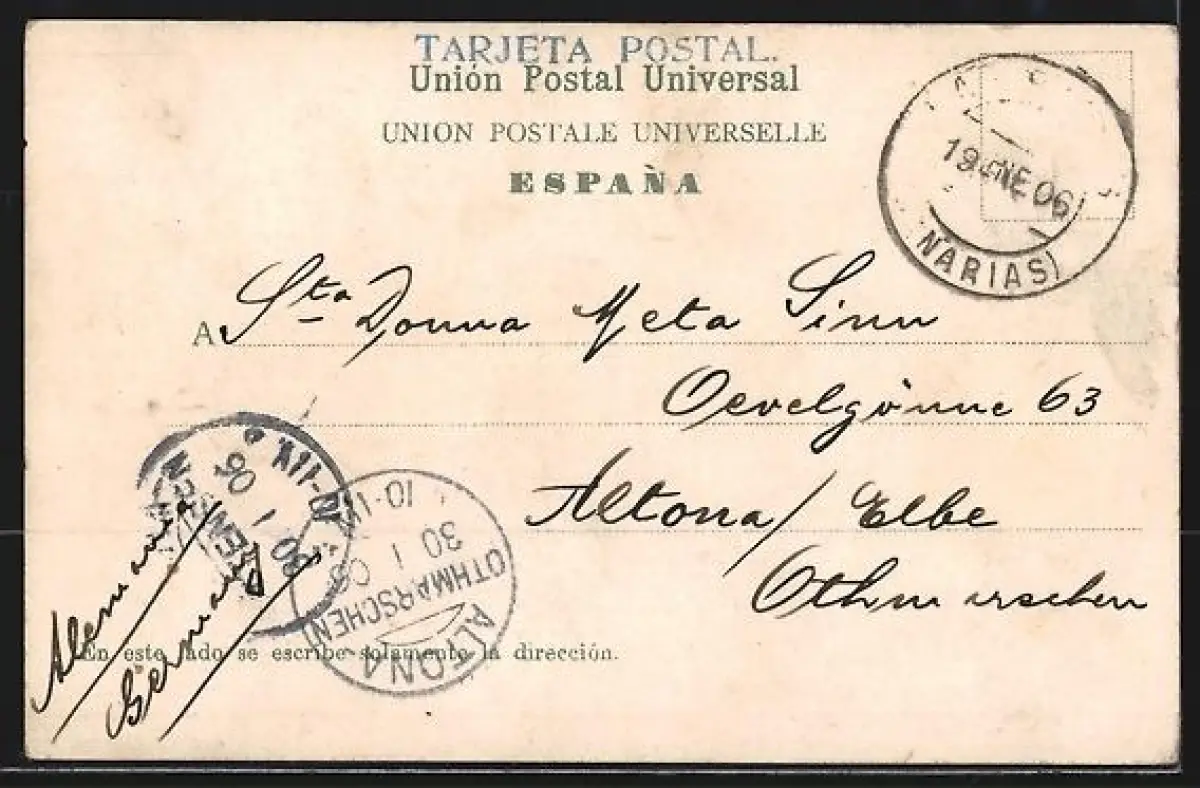 TARJETA POSTAL.
Unión Postal Universal
UNION POSTALE UNIVERSELLE
ESPAÑA
19 ENE 06
NARIAS)
A Sta Donna Meta Sinn
Oevelgönne 63
Altona / Elbe
Othmarschen
Alemania
Germany
30 1 06
10-11
30 1 06
OTHMARSCHEN
ALTONA
En este lado se escribe solamente la dirección.